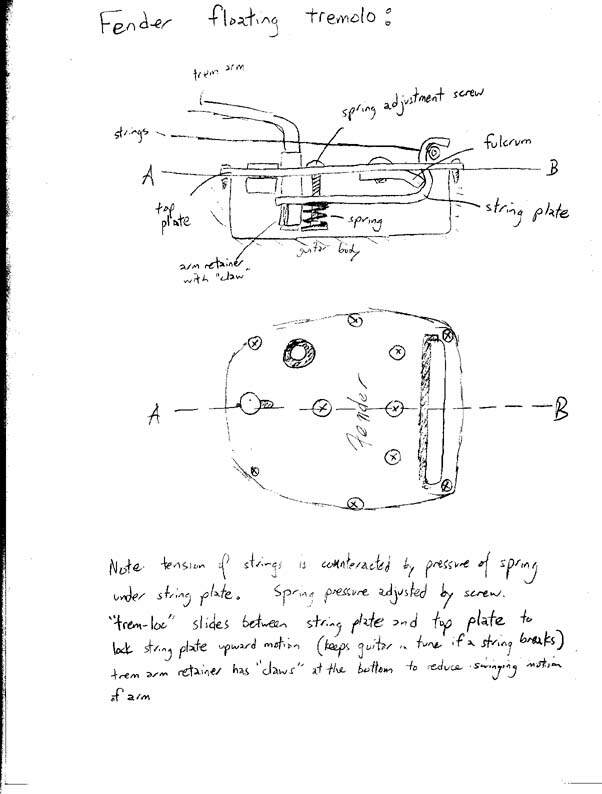 Fender floating tremolo:
trem arm
spring adjustment screw
strings
fulcrum
A
B
top
plate
spring
string plate
guitar body
arm retainer
with "claw"
A
Fender
B
Note tension of strings is counteracted by pressure of spring
under string plate. Spring pressure adjusted by screw.
"trem-loc" slides between string plate and top plate to
lock string plate upward motion (keeps guitar in tune if a string breaks)
trem arm retainer has "claws" at the bottom to reduce swinging motion
of arm